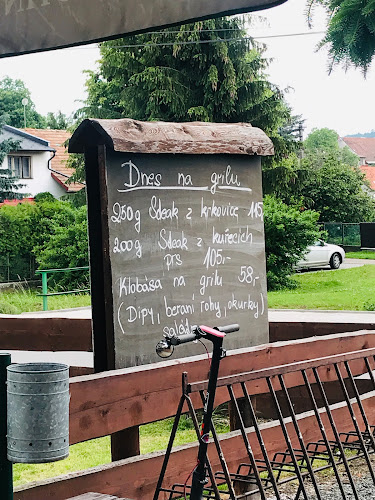 Dnes na grilu
250g Steak z krkovice 115,-
200g Steak z kuřecích
prs 105,-
Klobása na grilu 58,-
(Dipy, beraní rohy, okurky)
salát